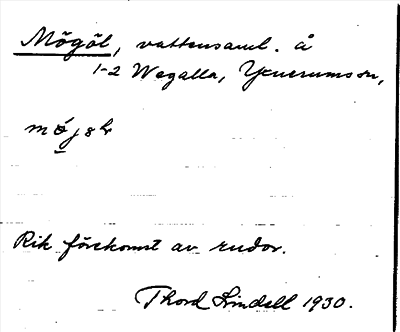 Mögöl, vattensaml. å
1-2 Wegalla,
Rik förekomst av rudor.
Thord Lindell 1930.